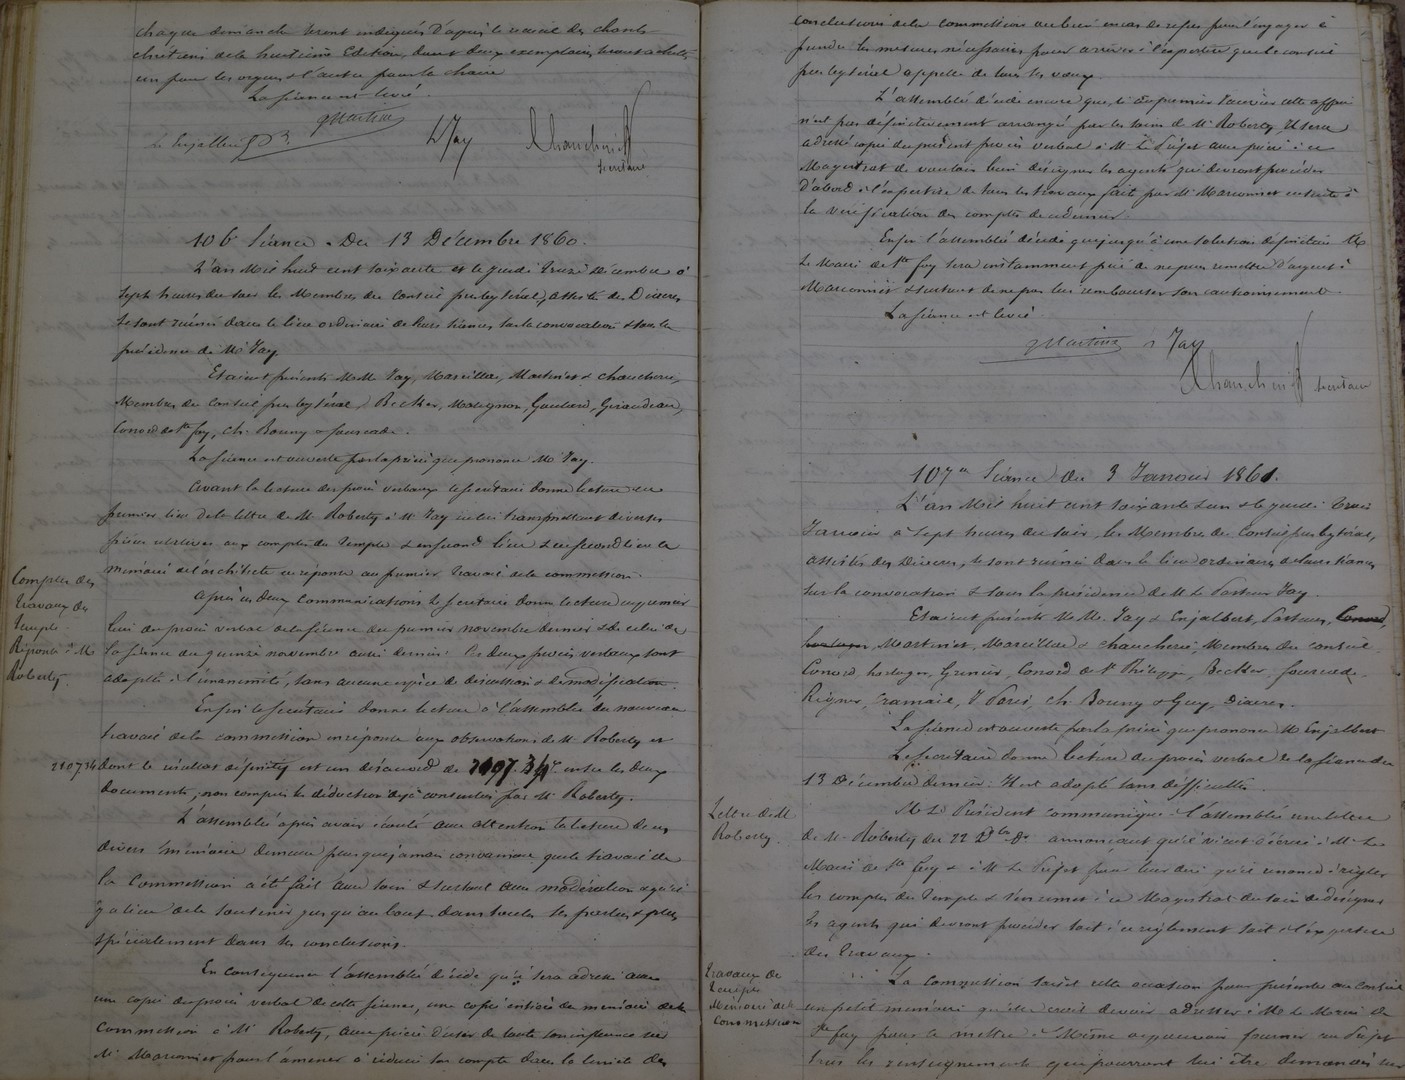 chaque dimanche seront indiqués d'après le recueil des chants
chrétiens de la huitième Edition, dont deux exemplaires seront achetés
un pour les orgues & l'autre pour la chaire
La séance est levée.
Martinet
L. Jay
Chaucherie
secrétaire
106 Séance. Du 13 Décembre 1860.
L'an Mil huit cent soixante et le jeudi treize décembre à
sept heures du soir les Membres du Conseil presbytéral, assistés des Diacres
se sont réunis dans le lieu ordinaire de leurs séances sur la convocation & sous la
présidence de Mr Jay
Etaient présents MM. Jay, Marcillac, Martinet & Chaucherie,
Membres du Conseil presbytéral, Becker, Goulard, Giraudeau,
Conord de Ste foy, Ch. Bouny & fourcade.
La séance est ouverte par la prière que prononce Mr Jay.
Avant la lecture des procès verbaux le secrétaire donne lecture en
premier lieu de la lettre de Mr Roberty à Mr Jay en lui transmettant diverses
pièces relatives aux comptes du Temple & en second lieu & en second lieu le
mémoire de l'architecte en réponse au premier travail de la commission.
Comptes des
travaux du
Temple
Réponse à Mr
Roberty.
Après ces deux communications le secrétaire donne lecture en premier
lieu du procès verbal de la séance du premier novembre dernier & de celui de
la séance du quinze novembre aussi dernier. Ces deux procès verbaux sont
adoptés à l'unanimité, sans aucune espèce de discussion & de modification.
Enfin le secrétaire donne lecture à l'assemblée du nouveau
travail de la commission en réponse aux observations de Mr Roberty et
dont le résultat définitif est un désaccord de entre les deux
documents, non compris la déduction déjà consentie par Mr Roberty.
L'assemblée après avoir écouté avec attention la lecture de ces
divers mémoires demeure plus que jamais convaincue que le travail de
la Commission a été fait avec soin & surtout avec modération & qu'il
y a lieu de le soutenir jusqu'au bout dans toutes ses parties & plus
spécialement dans ses conclusions.
En conséquence l'assemblée décide qu'il sera adressé avec
une copie du procès verbal de cette séance, une copie entière du mémoire de la
Commission à Mr Roberty, avec prière d'user de toute son influence sur
Mr Marconnet pour l'amener à réduire son compte dans la limite des
conclusions de la commission ou bien en cas de refus pour l'engager à
prendre les mesures nécessaires pour arriver à l'expertise que le conseil
presbytéral appelle de tous ses vœux.
L'assemblée décide encore que, si au premier Janvier cette affaire
n'est pas définitivement arrangée par les soins de Mr Roberty il sera
adressé copie du présent procès verbal à Mr Le Préfet avec prière à ce
Magistrat de vouloir bien désigner les agents qui devront procéder
d'abord à l'expertise de tous les travaux faits par Mr Marconnet ensuite à
la vérification des comptes de ce dernier.
Enfin l'assemblée décide que jusqu'à une solution définitive Mr
Le Maire de Ste foy sera instamment prié de ne pas remettre d'argent à
Marconnet & surtout de ne pas lui rembourser son cautionnement.
La séance est levée.
Martinet
L. Jay
Chaucherie
secrétaire
107e Séance du 3 Janvier 1861.
L'an Mil huit cent soixante & un & le jeudi trois
Janvier à sept heures du soir, les Membres du Conseil presbytéral,
assistés des Diacres, se sont réunis dans le lieu ordinaire de leurs séances
sur la convocation & sous la présidence de Mr Le Pasteur Jay.
Etaient présents MM. Jay & Enjalbert, Pasteurs, Conord,
horloger, Martinet, Marcillac & Chaucherie, Membres du conseil
Conord, horloger, Grenier, Conord de St Philippe, Becker, fourcade,
Ch. Bouny & Guy, Diacres.
La séance est ouverte par la prière que prononce Mr Enjalbert
Le secrétaire donne lecture du procès verbal de la séance du
13 Décembre dernier. Il est adopté sans difficulté.
Lettre de Mr
Roberty.
Mr Le Président communique à l'assemblée une lettre
de Mr Roberty du 22 Xbre dr annonçant qu'il vient d'écrire à Mr Le
Maire de Ste foy & à Mr Le Préfet pour leur dire qu'il renonce à régler
les comptes du Temple & s'en remet à ce Magistrat du soin de désigner
les agents qui devront procéder soit à ce règlement soit à l'expertise
des travaux.
Travaux du
Temple
Mémoire de la
Commission
La Commission saisit cette occasion pour présenter au Conseil
un petit mémoire qu'elle croit devoir adresser à Mr Le Maire de
Ste foy pour le mettre à même de pouvoir fournir au Préfet
tous les renseignements qui pourront lui être demandés